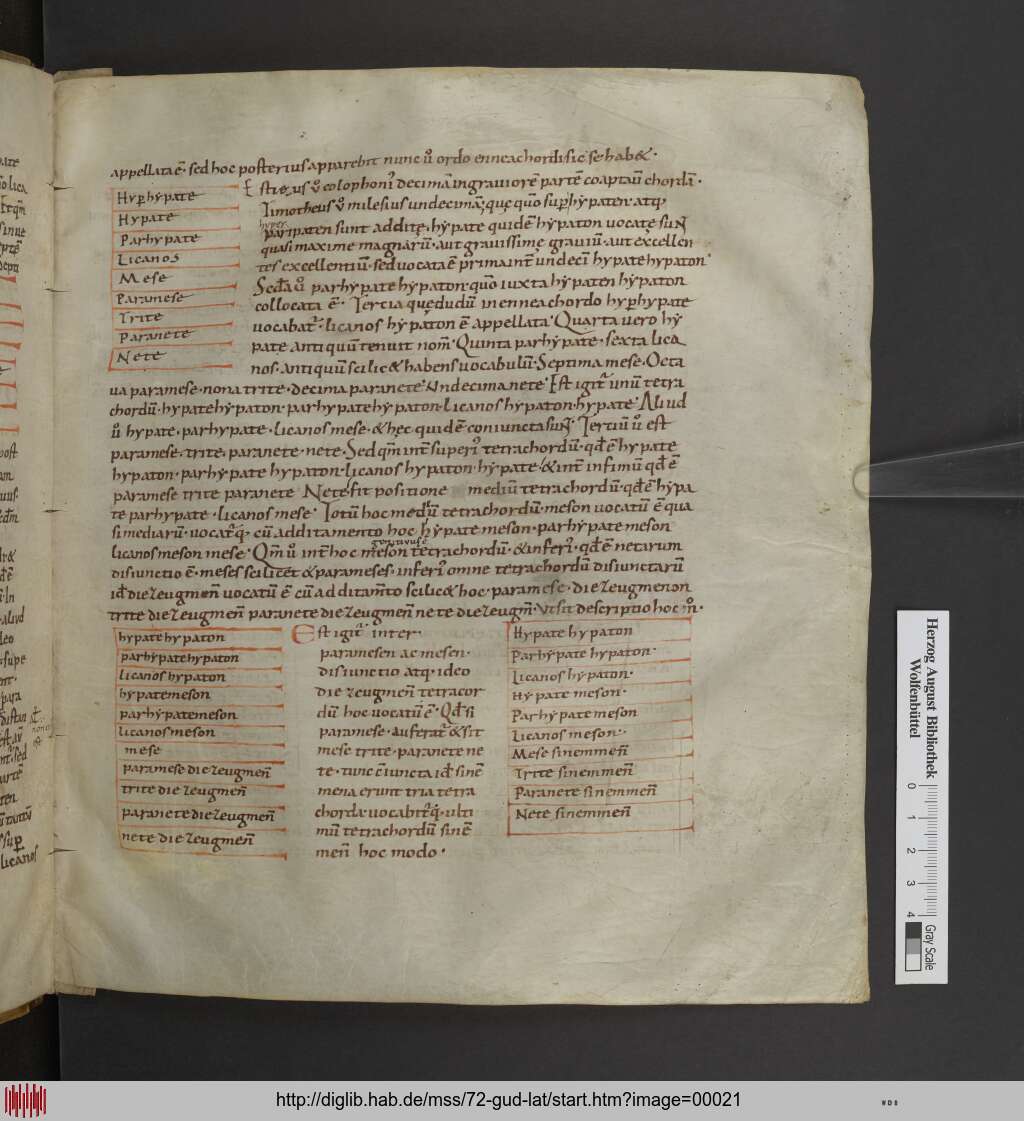 appellata ē· sed hoc posterius apparebit nunc ů ordo enneachordi sic se hab&·
Hyꝑhypate
Hypate
Parhypate
Licanos
Mese
Paramese
Trite
Paranete
Nete
Estie⁊us ů colophoni᷒ decimā in graviorē partē coaptavͭ chordā·
Timotheus ů milesius undecimā· quę quō suꝑ hypaten· atq;
hyper
paripaten sunt additę· hypate quidē hypaton vocatę suN̄
quasi maxime magnarū· aut gravissime graviū· aut excellen
tes excellentiū· sed vocata ē prima inť undeci hypate hypaton·
Scđa ů parhypate hypaton· quō iuxta hypaten hypaton
collocata ē· Tercia quę dudū in enneachordo hyꝑhypate
vocabať· licanos hypaton ē appellata· Quarta uero hy
pate antiquū tenuit nom̄· Quinta parhypate· sexta lica
nos· antiquū scilic& habens vocabulū· Septima mese· Octa
ua paramese· nona trite· decima paranete· Undecima nete· Est igiť unū tetra
chordū· hypate hypaton· parhypate hypaton· Licanos hypaton· hypate· Aliud
ů hypate· parhypate· licanos mese· & hęc quidē coniuncta suN̄· Terciū ů est
paramese· trite· paranete· nete· Sed qm̄ inť superi᷒ tetrachordū· qđ ē hypate
hypaton· parhypate hypaton· licanos hypaton· hypate· & inť infimū qđ ē
paramese trite paranete Nete· fit positione mediū tetrachordū· qđ ē hypa
te parhypate· licanos mese· Totū hoc mediū tetrachordū· meson vocatū ē qua
si mediarū· vocať q; cū additamento hoc hypate meson· parhypate meson
licanos meson mese· Qm̄ ů inť hoc meson tetrachordū· & inferi᷒ qđ ē netarum
disiunctio ē· meses scilicet & parameses· inferi᷒ omne tetrachordū disiunctarū
iđ die⁊eugmen̄ vocatū ē cū additam̄to scilic& hoc· paramese· die⁊eugmenon
trite die⁊eugmen̄ paranete die⁊eugmen̄ nete die⁊eugm̄· Ut sit descriptio hoc m̊·
hypate hypaton
parhypate hypaton
licanos hypaton
hypate meson
parhypate meson
licanos meson
mese
paramese die⁊eugmen̄
trite die⁊eugmen̄
paranete die⁊eugmen̄
nete die⁊eugmen̄
Est igiť inter·
paramesen ac mesen·
disiunctio atq· ideo
die⁊eugmen̄ tetracor
dū hoc vocatū ē· Qđ si
paramese· auferať & sit
mese trite· paranete ne
te· tunc c̄iuncta iđ sinē
mena erunt tria tetra
chorda· vocabiť q· ulti
mū tetrachordū sinē
men̄ hoc modo·
Hypate hypaton
Parhypate hypaton·
Licanos hypaton·
Hypate meson·
Parhypate meson
Licanos meson·
Mese sinemmen̄
Trite sinemmen̄
Paranete sinemmen̄
Nete sinemmen̄
Herzog August Bibliothek
Wolfenbüttel
0 1 2 3 4
Gray Scale
http://diglib.hab.de/mss/72-gud-lat/start.htm?image=00021